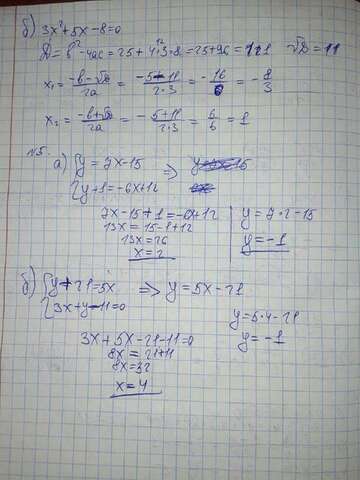 б) 3x²+5x-8=0
D=b²-4ac=25+4·3·8=25+96=121 √D=11
x₁=(-b-√D)/2a=(-5-11)/2·3=-16/6=-8/3
x₂=(-b+√D)/2a=(-5+11)/2·3=6/6=1
№5.
а) {y=7x-15 ⇒
{y+1=-6x+12
7x-15+1=-6x+12 y=7·2-15
13x=15-1+12 y=-1
13x=26
x=2
б) {y+21=5x ⇒ y=5x-21
{3x+y-11=0
y=5·4-21
3x+5x-21-11=0 y=-1
8x=21+11
8x=32
x=4